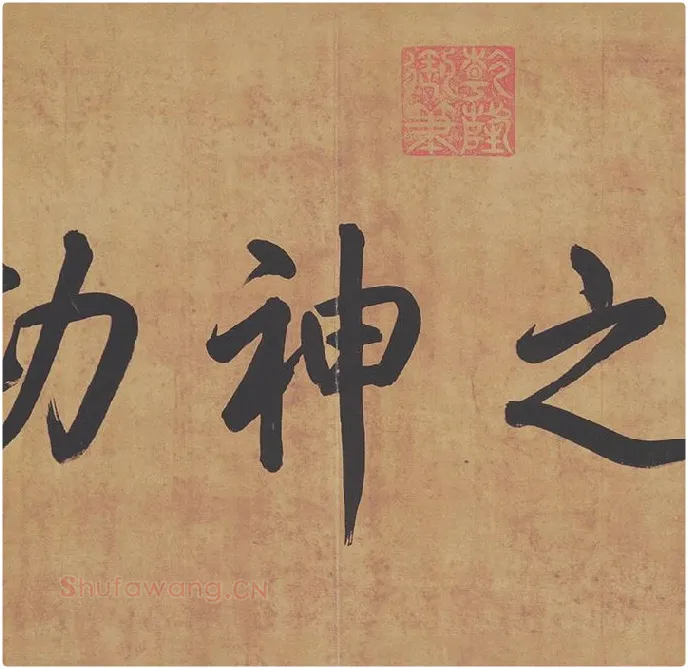 乾隆
御筆
之神
Shufawang.CN